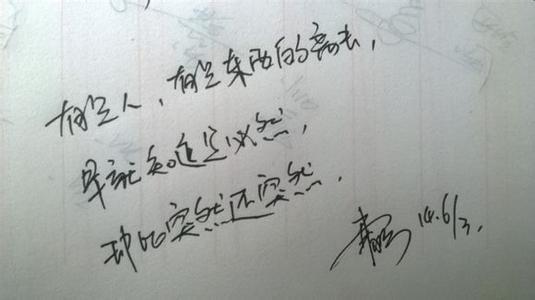 有些人，有些东西的离去，
早就知道是必然，
却比突然还突然.
14.6/3.